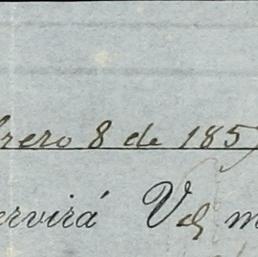 brero 8 de 185
ervirá Vds m